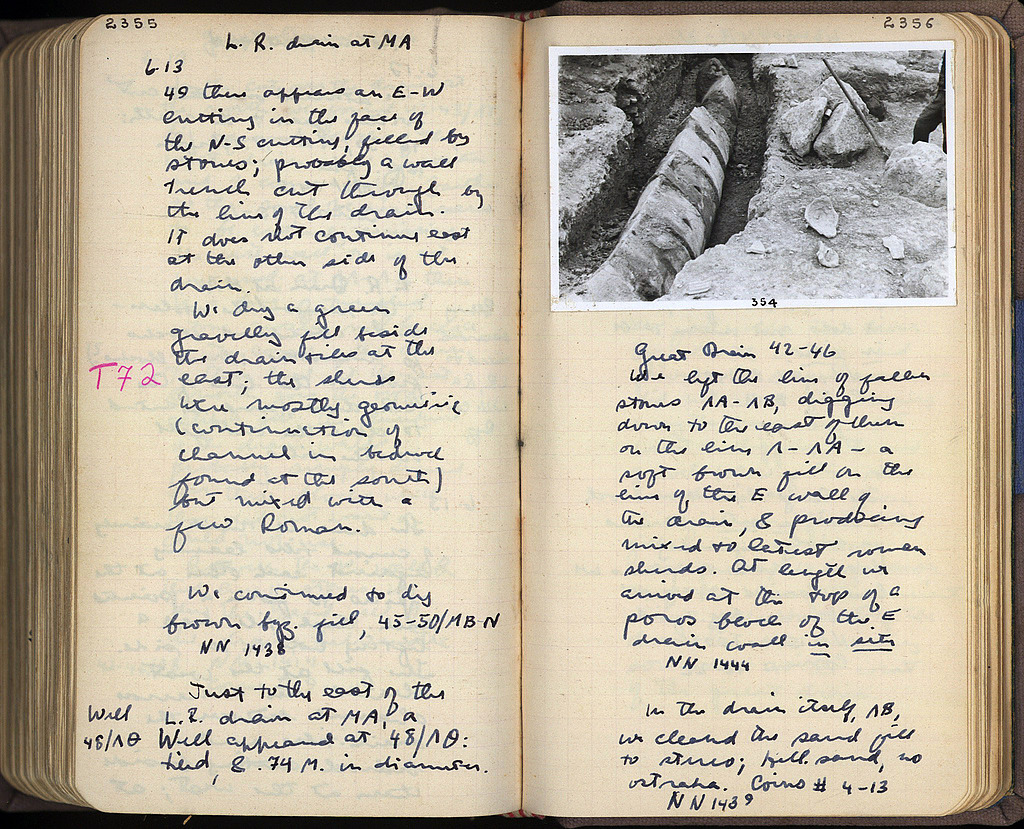 2355
L. R. drain at MA
6 13
49 there appears an E-W
cutting in the face of
the N-S cutting, filled by
stones; probably a wall
trench cut through by
the line of the drain.
It does not continue east
at the other side of the
drain.
We dug a green
gravelly fill beside
the drain tiles at the
T72
east; the sherds
were mostly geometric
(continuation of
channel in bedrock
found at the south)
but mixed with a
few Roman.
We continued to dig
brown byz. fill, 45-50/MB-N
NN 1438
Just to the east of the
Well
48/ΛΘ
L.R. drain at MA, a
Well appeared at 48/ΛΘ:
tiled, & .74 M. in diameter.
2356
354
Great Drain 42-46
We left the line of fallen
stones ΛA-ΛB, digging
down to the east of them
on the line Λ-ΛA - a
soft brown fill on the
line of the E wall of
the drain, & producing
mixed to latest roman
sherds. At length we
arrived at the top of a
poros block of the E
drain wall in situ
NN 1444
In the drain itself, ΛB,
we cleaned the sand fill
to stereo; Hell. sand, no
ostraka. Coins # 4-13
NN 1439